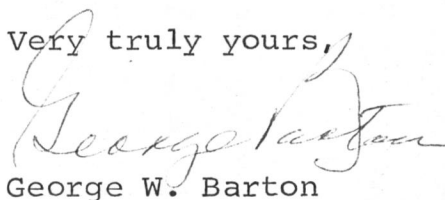 Very truly yours,
George Barton
George W. Barton